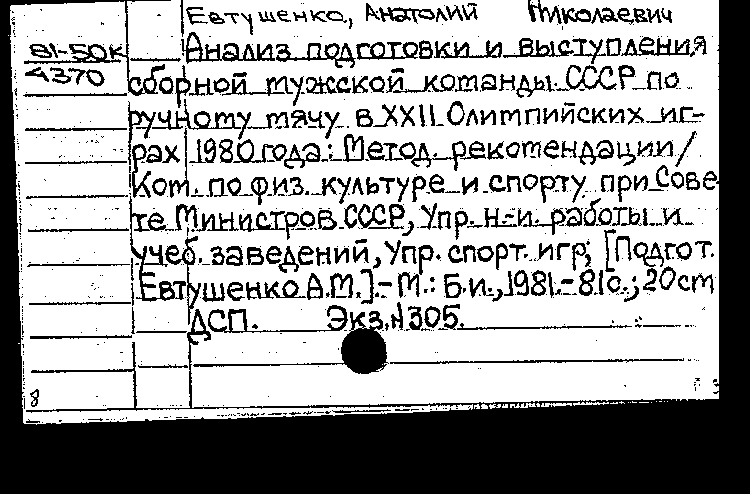 Евтушенко, Анатолий Николаевич
81-50к Анализ подготовки и выступления
4370 сборной мужской команды СССР по
ручному мячу в XXII Олимпийских иг-
рах 1980 года: Метод. рекомендации/
Ком. по физ. культуре и спорту при Сове-
те Министров СССР, Упр. н.-и. работы и
учеб. заведений, Упр. спорт. игр; [Подгот.
Евтушенко А.М.].- М.: Б.и., 1981.- 81 с.; 20 см
ДСП. Экз. N 305.
8